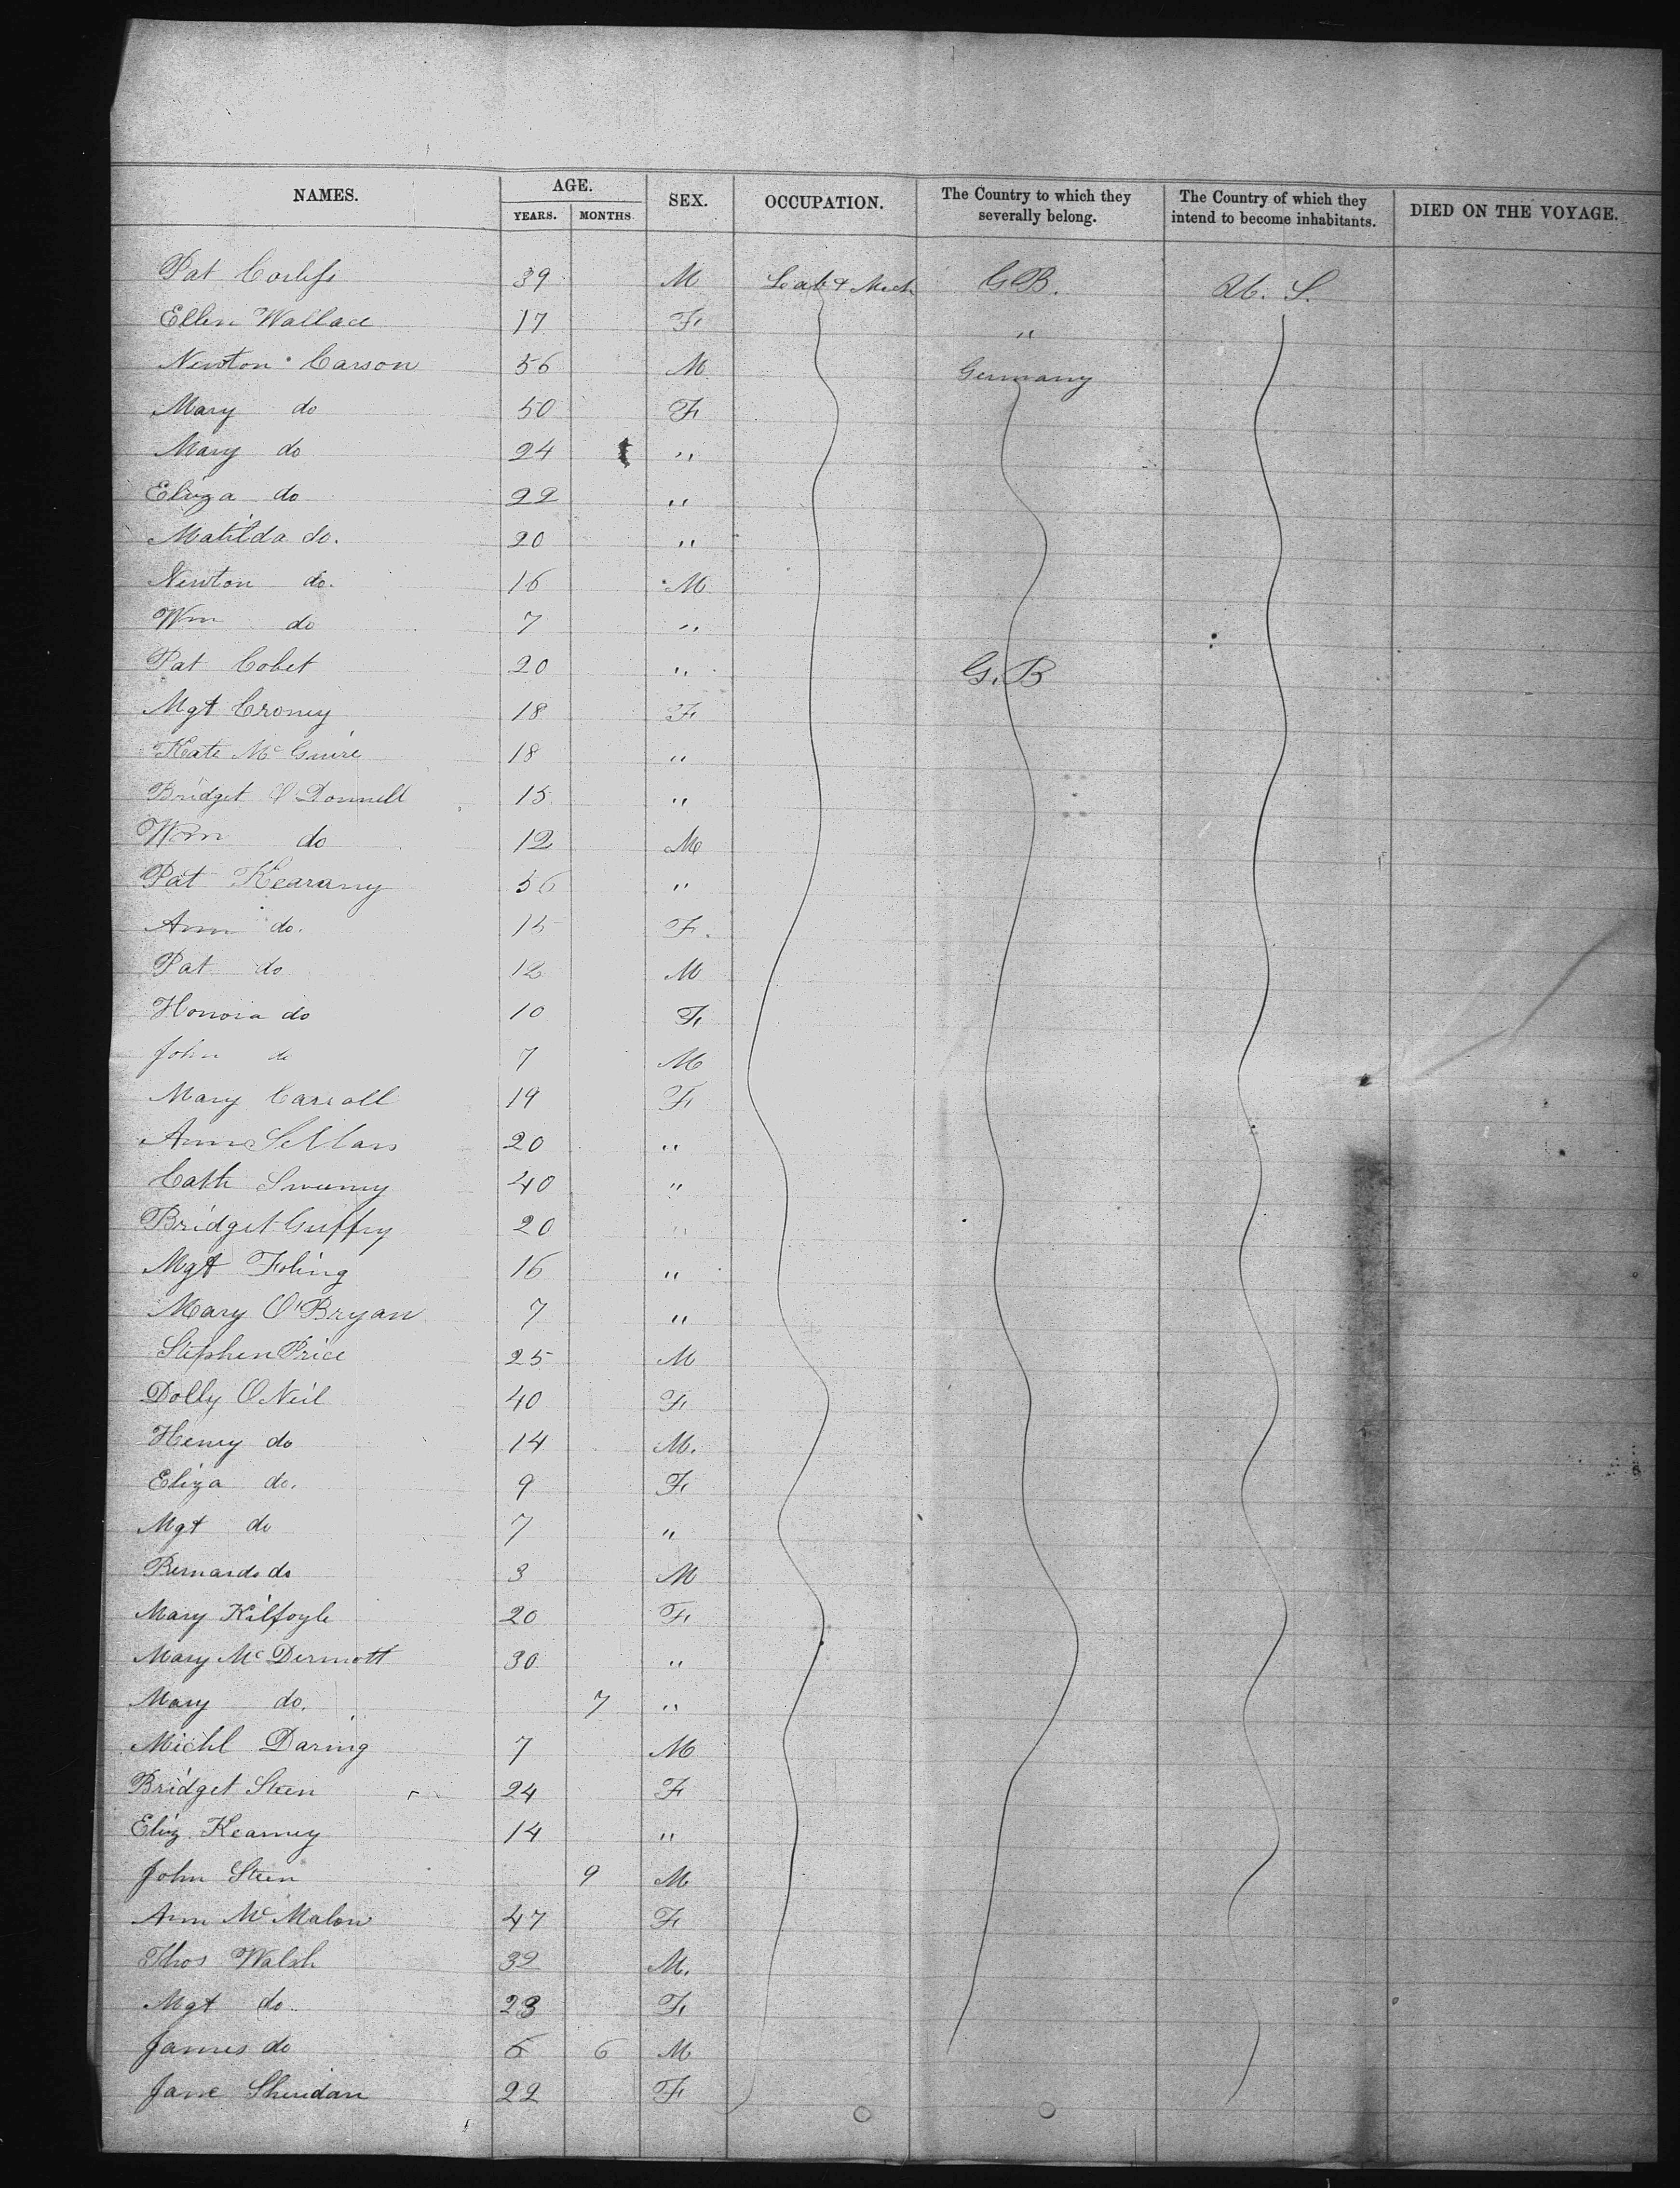 NAMES. AGE. SEX. OCCUPATION. The Country to which they severally belong. The Country of which they intend to become inhabitants. DIED ON THE VOYAGE.
YEARS. MONTHS.
Pat Corliss 39 M Lab & Mech G.B. U. S.
Ellen Wallace 17 F "
Newton Carson 56 M Germany
Mary do 50 F
Mary do 24 "
Eliza do 22 "
Matilda do. 20 "
Newton do. 16 M
Wm do 7 "
Pat Cobet 20 " G. B
Mgt Croney 18 F
Kate McGuire 18 "
Bridget O'Donnell 15 "
Wm do 12 M
Pat Kearany 56 "
Ann do. 15 F.
Pat do 12 M
Honora do 10 F
John do 7 M
Mary Carroll 19 F
Ann Sellars 20 "
Cath Sweeny 40 "
Bridget Guffry 20 "
Mgt Foling 16 "
Mary O'Bryan 7 "
Stephen Price 25 M
Dolly O Neil 40 F
Henry do 14 M.
Eliza do. 9 F
Mgt do 7 "
Bernard do 3 M
Mary Kilfoyle 20 F
Mary McDermott 30 "
Mary do. 7 "
Michl Daring 7 M
Bridget Steen 24 F
Eliz. Kearney 14 "
John Steen 9 M
Ann McMalon 47 F
Thos Walsh 32 M.
Mgt do. 23 F
James do 6 M
Jane Sheridan 22 F